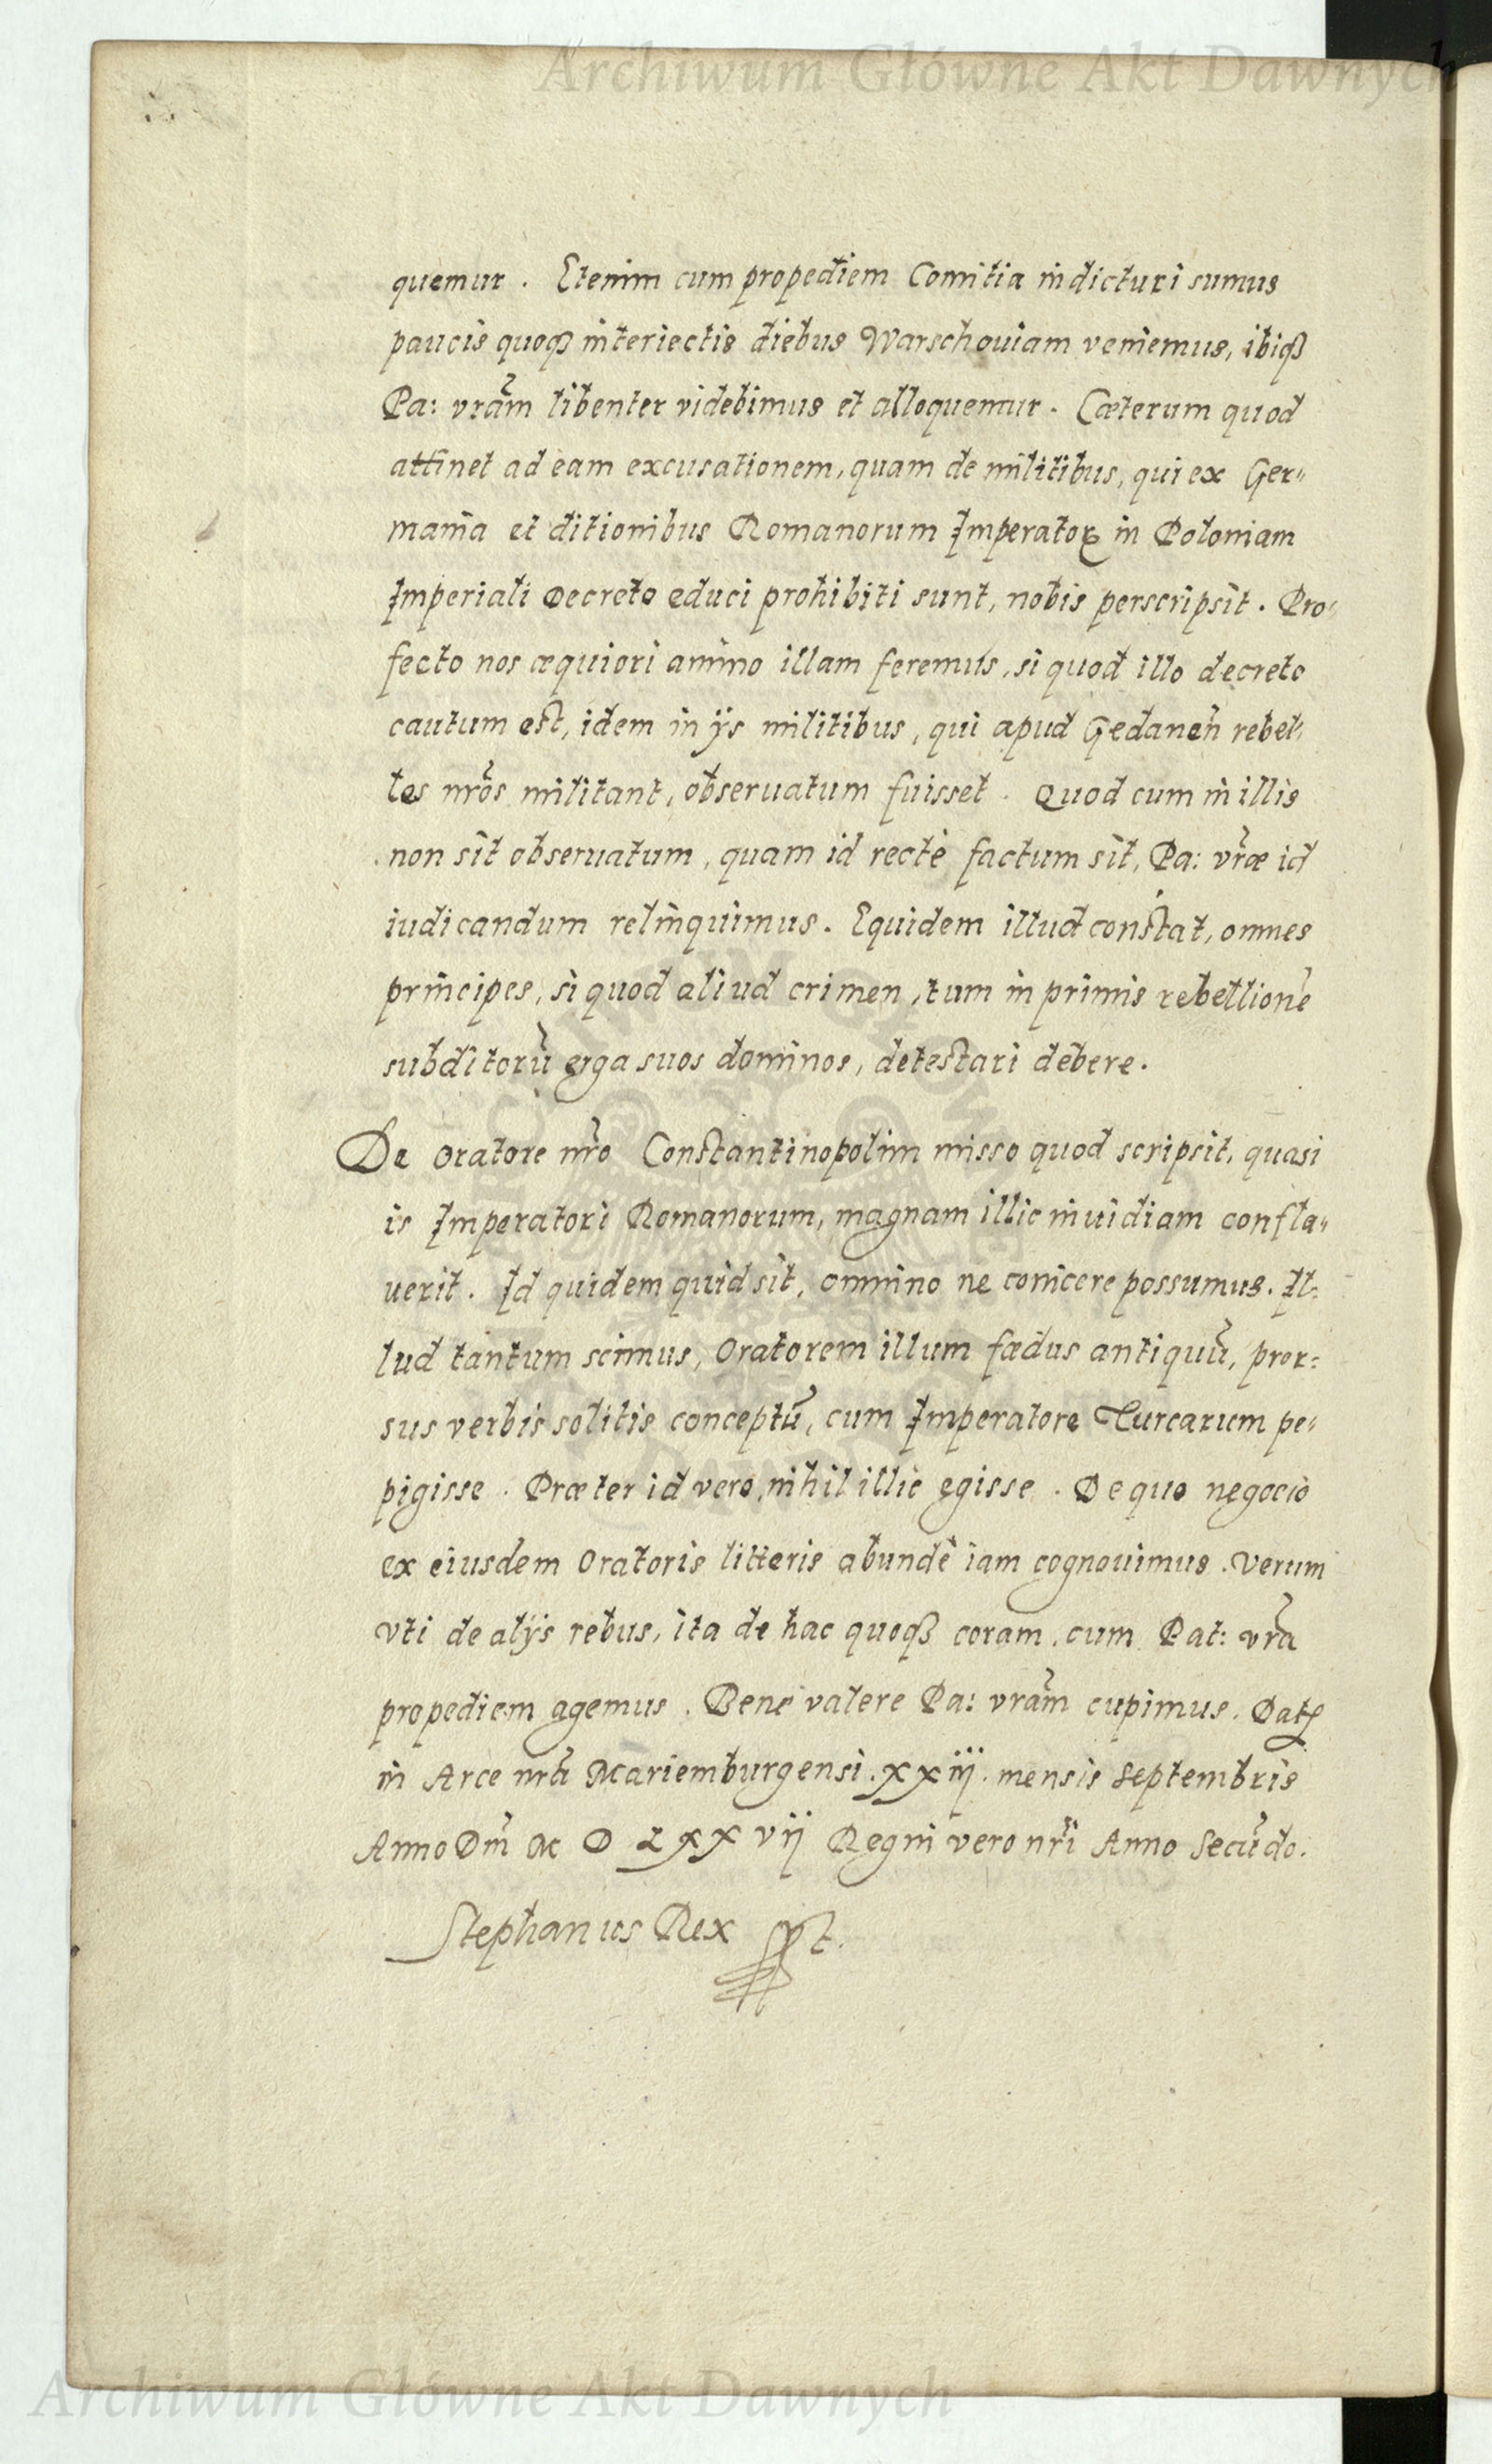 Archiwum Główne Akt Dawnych
quemur. Etenim cum propediem Comitia indicturi sumus
paucis quoqꝫ interiectis diebus Warschouiam veniemus, ibiqꝫ
Pa: vr̃am libenter videbimus et alloquemur. Cæterum quod
attinet ad eam excusationem, quam de militibus, qui ex Ger„
mania et ditionibus Romanorum Imperatoꝝ in Poloniam
Imperiali Decreto educi prohibiti sunt, nobis perscripsit. Pro„
fecto nos æquiori animo illam feremus, si quod illo decreto
cautum est, idem in ijs militibus, qui apud Gedaneñ rebel„
les nr̃os militant, obseruatum fuisset. Quod cum in illis
non sit obseruatum, quam id rectè factum sit, Pa: vr̃æ id
iudicandum relinquimus. Equidem illud constat, omnes
principes, si quod aliud crimen, tum in primis rebellionẽ
subditorũ erga suos dominos, detestari debere.
De Oratore nr̃o Constantinopolim misso quod scripsit, quasi
is Imperatori Romanorum, magnam illic inuidiam confla„
uerit. Id quidem quid sit, omnino ne conicere possumus. Il=
lud tantum scimus, Oratorem illum fœdus antiquũ, pror=
sus verbis solitis conceptũ, cum Imperatore Turcarum pe„
pigisse. Præter id vero, nihil illic egisse. De quo negocio
ex eiusdem Oratoris litteris abundè iam cognouimus. Verum
vti de alijs rebus, ita de hac quoqꝫ coram, cum Pat: vr̃a
propediem agemus. Bene valere Pa: vr̃am cupimus. Datꝭ
in Arce nr̃a Mariemburgensi. xxiij. mensis Septembris
Anno Dñi M D Lxxvij Regni vero nr̃i Anno Secũdo.
Stephanus Rex sspt.
Archiwum Główne Akt Dawnych